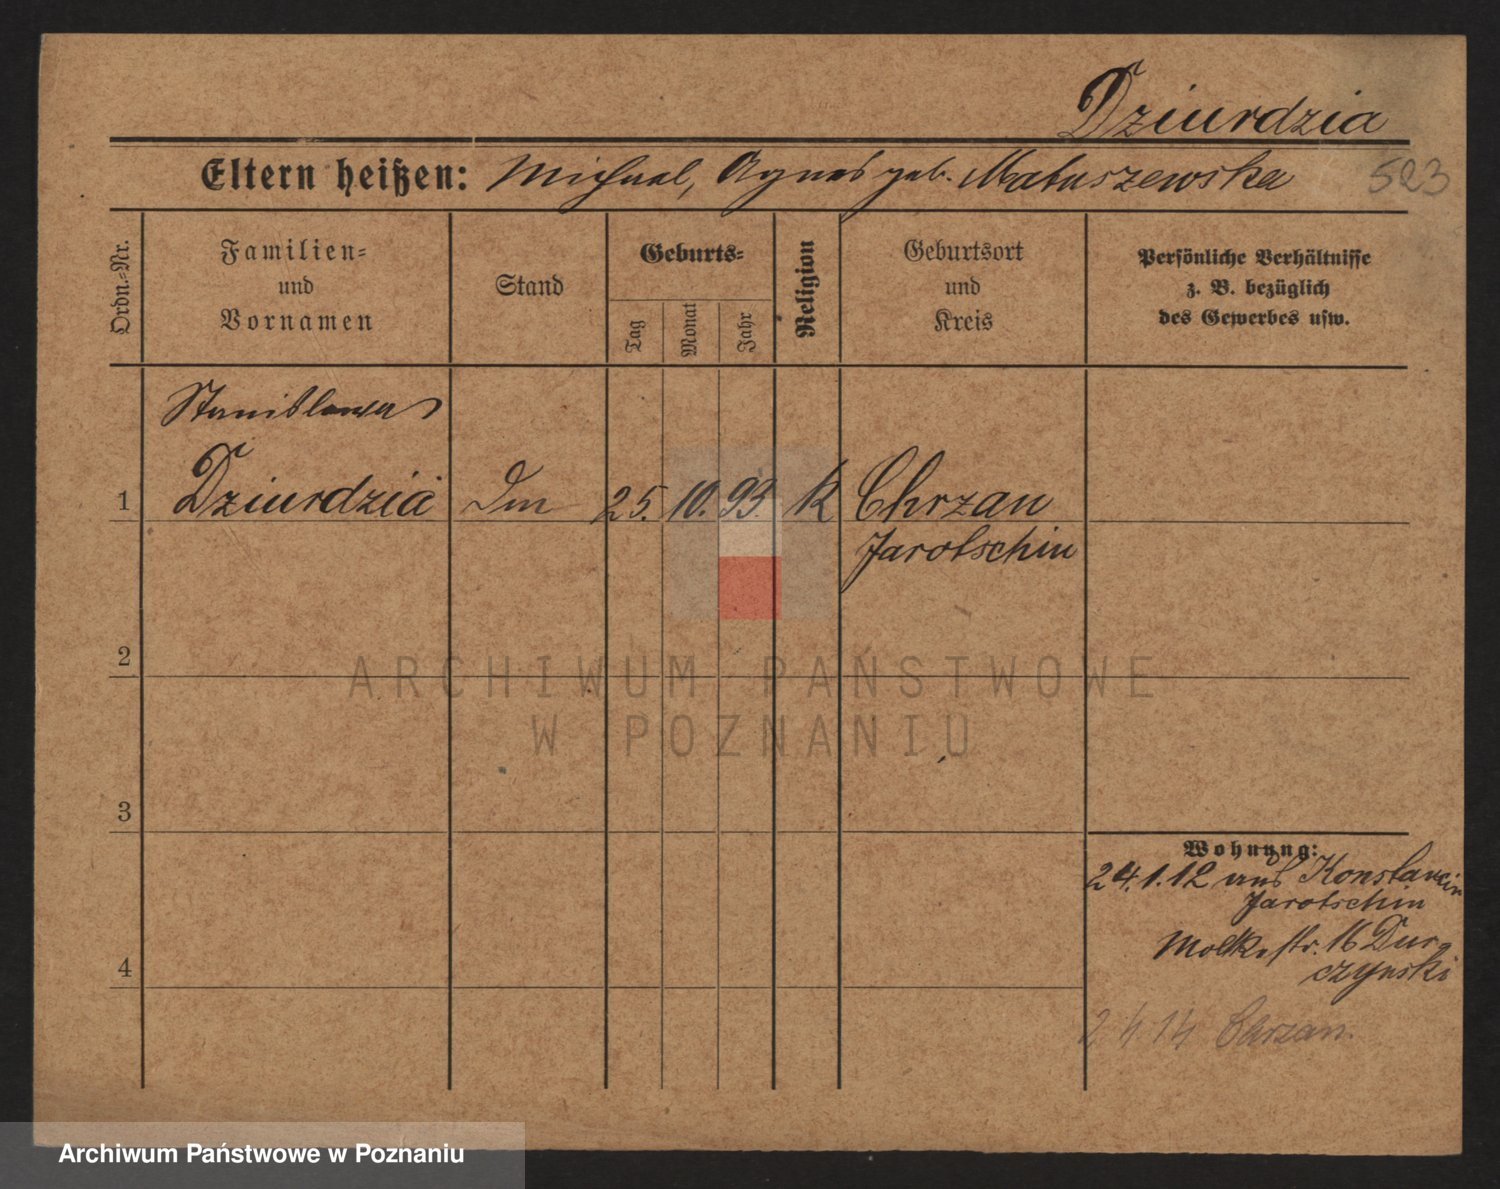 Dziurdzia
Eltern heißen: Michael, Agnes geb. Matuszewska
523
Ordn.-Nr.
Familien-
und
Vornamen
Stand
Geburts-
Tag
Monat
Jahr
Religion
Geburtsort
und
Kreis
Persönliche Verhältnisse
z. B. bezüglich
des Gewerbes usw.
Stanislawa
1 Dziurdzia 25. 10. 93. k Chrzan
Jarotschin
2
ARCHIWUM PAŃSTWOWE
W POZNANIU
3
Wohnung:
24.1.12 aus Konstancin
Jarotschin
Moltkestr. 16 Dur
czynski
4
2 4 14 Chrzan.
Archiwum Państwowe w Poznaniu